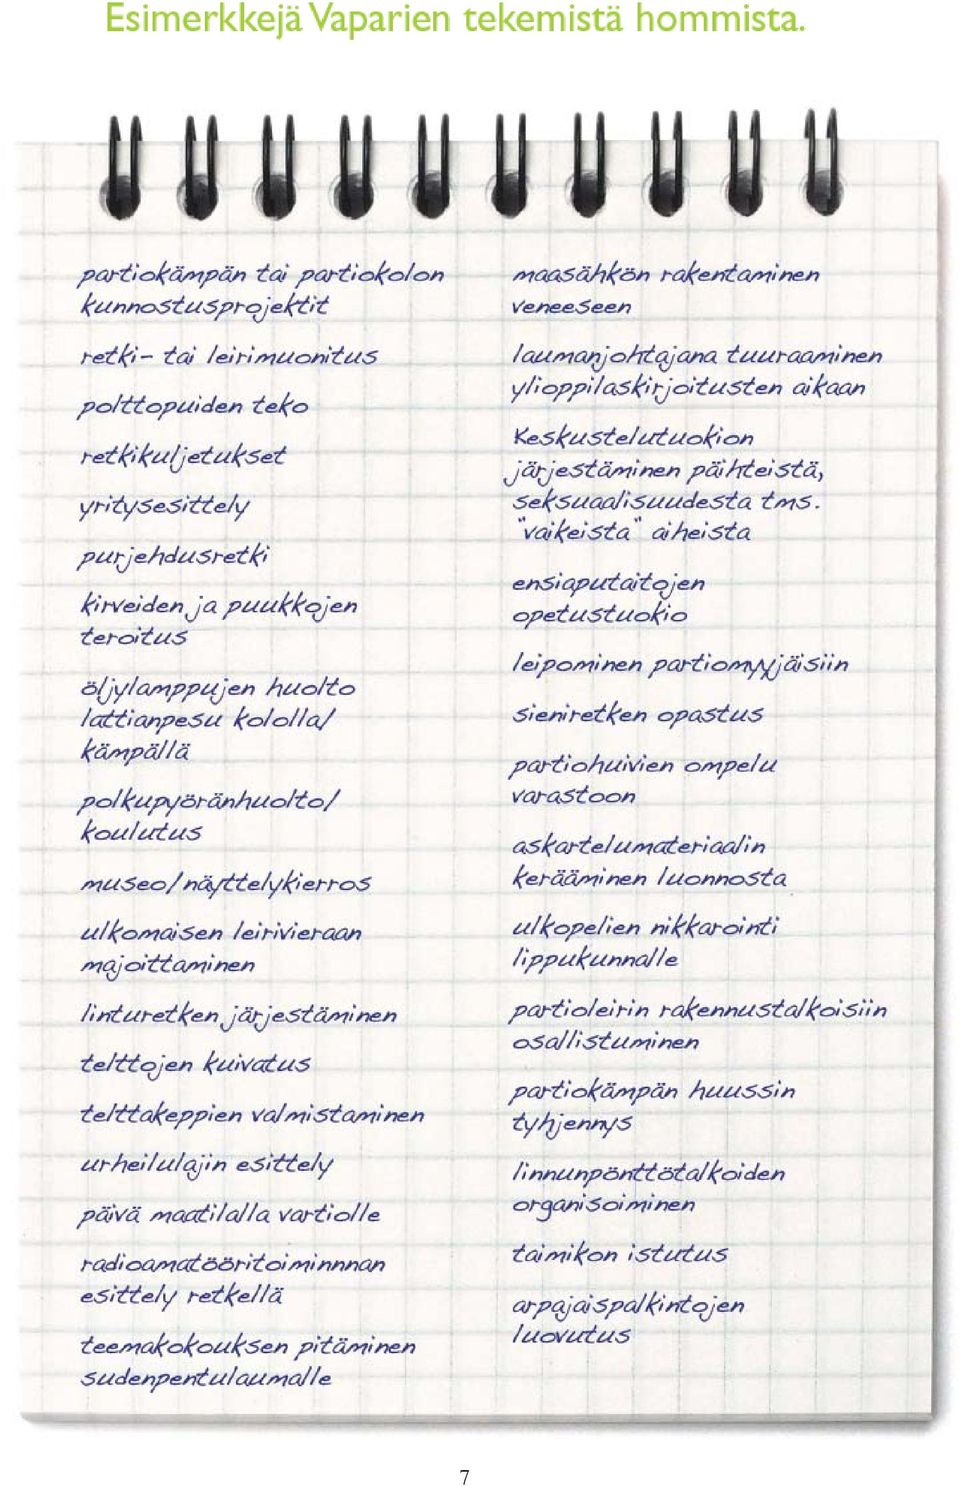 Esimerkkejä Vaparien tekemistä hommista.
partiokämpän tai partiokolon
kunnostusprojektit
retki- tai leirimuonitus
polttopuiden teko
retkikuljetukset
yritysesittely
purjehdusretki
kirveiden ja puukkojen
teroitus
öljylamppujen huolto
lattianpesu kololla/
kämpällä
polkupyöränhuolto/
koulutus
museo/näyttelykierros
ulkomaisen leirivieraan
majoittaminen
linturetken järjestäminen
telttojen kuivatus
telttakeppien valmistaminen
urheilulajin esittely
päivä maatilalla vartiolle
radioamatööritoiminnnan
esittely retkellä
teemakokouksen pitäminen
sudenpentulaumalle
maasähkön rakentaminen
veneeseen
laumanjohtajana tuuraaminen
ylioppilaskirjoitusten aikaan
Keskustelutuokion
järjestäminen päihteistä,
seksuaalisuudesta tms.
"vaikeista" aiheista
ensiaputaitojen
opetustuokio
leipominen partiomyyjäisiin
sieniretken opastus
partiohuivien ompelu
varastoon
askartelumateriaalin
kerääminen luonnosta
ulkopelien nikkarointi
lippukunnalle
partioleirin rakennustalkoisiin
osallistuminen
partiokämpän huussin
tyhjennys
linnunpönttötalkoiden
organisoiminen
taimikon istutus
arpajaispalkintojen
luovutus
7